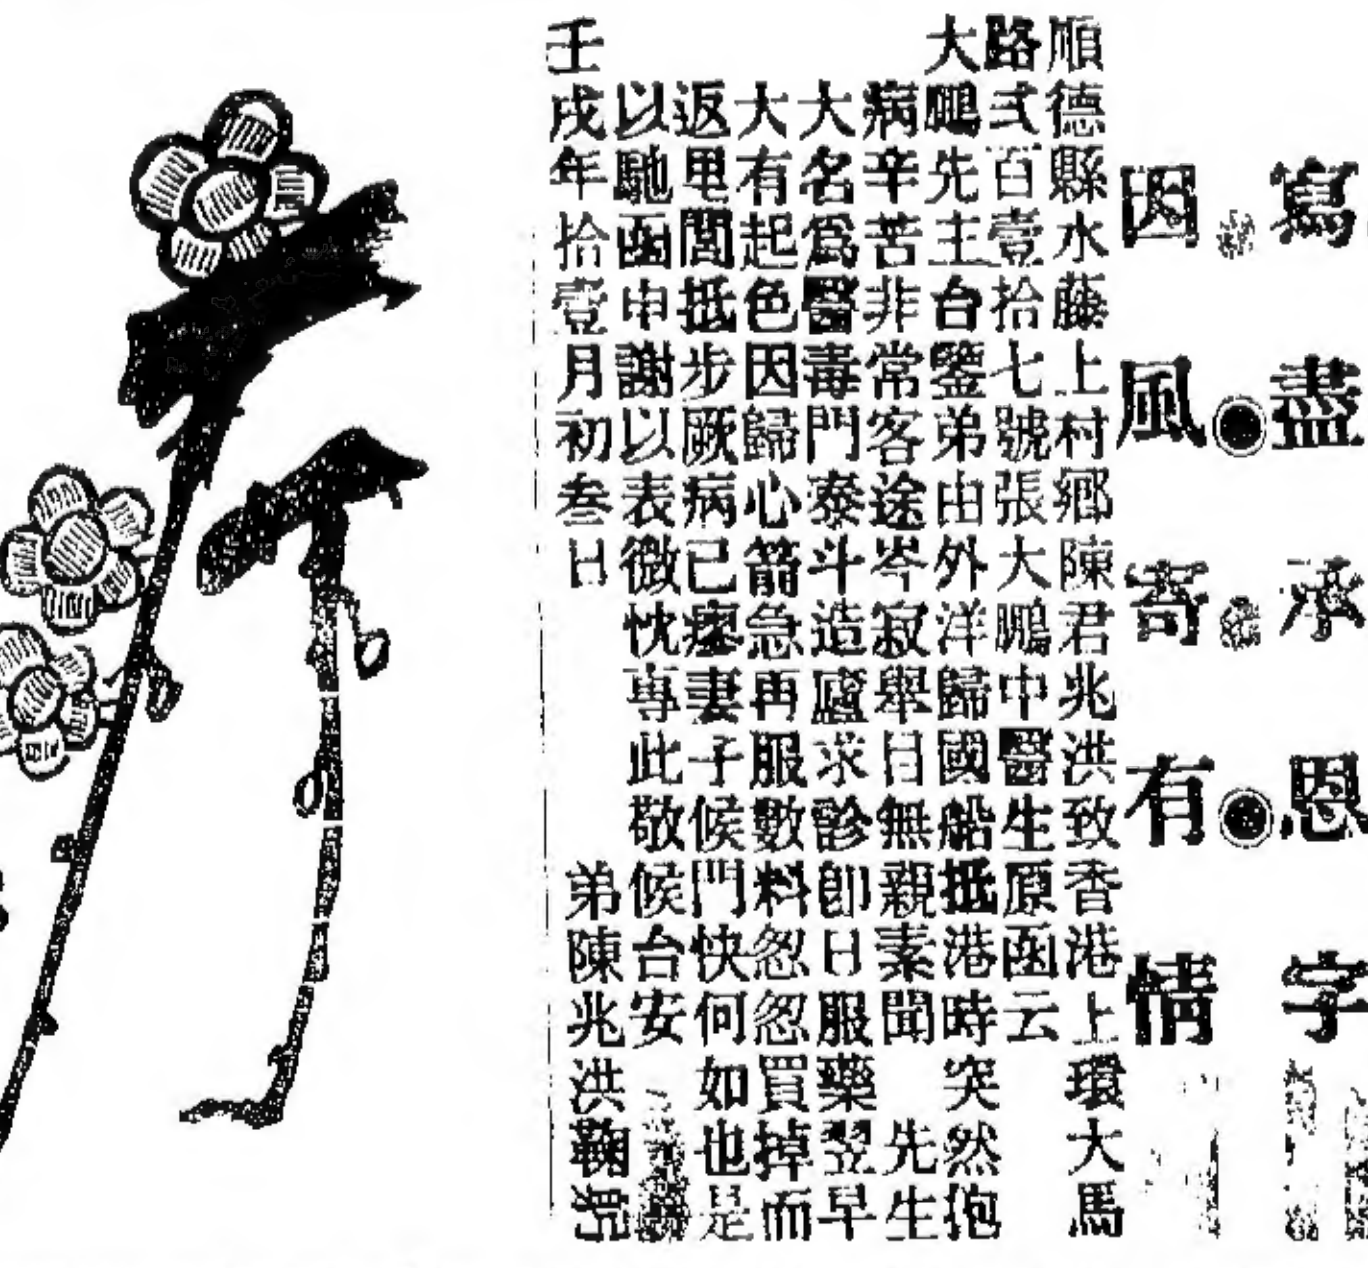 寫盡承恩字
因風寄有情
順德縣水藤上村鄉陳君兆洪致香港上環大馬
路弍百壹拾七號張大鵬中醫生原函云
大鵬先生台鑒弟由外洋歸國船抵港時突然抱
病辛苦非常客途岑寂舉目無親素聞 先生
大名爲醫毒門泰斗造廬求診卽日服藥翌早
大有起色因歸心箭急再服數料怱怱買掉而
返里閭抵步厥病已瘳妻子候門快何如也是
以馳函申謝以表微忱專此敬候台安
壬戌年拾壹月初叁日 弟陳兆洪鞠躬